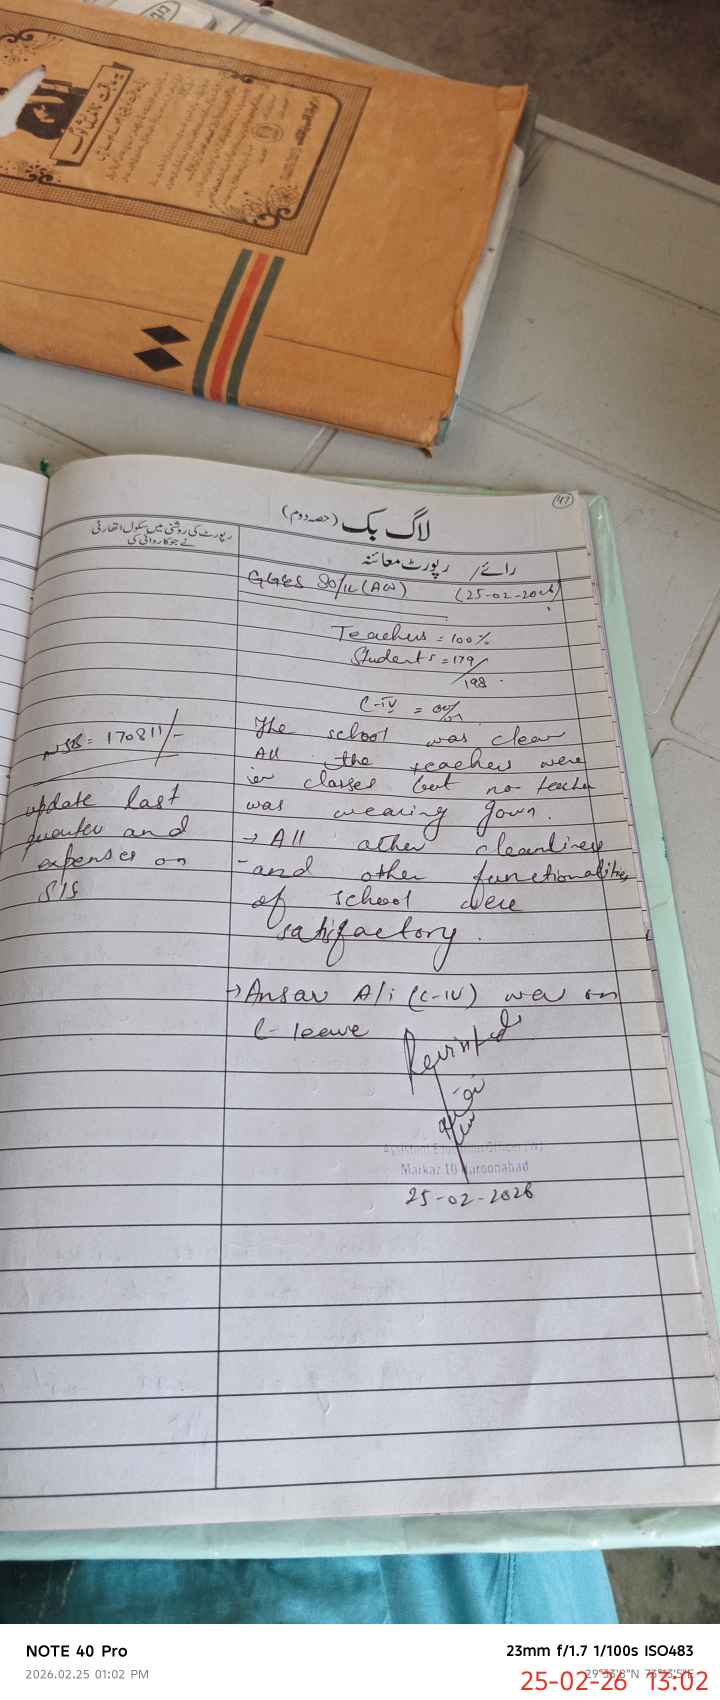 47
لاگ بک (حصہ دوم)
رپورٹ کی روشنی میں سکول اتھارٹی
نے جو کارروائی کی
رائے / رپورٹ معائنہ
GGES 80/ (25-02-2026)
Teachers = 100%
Student's = 179/
198
C-IV =
The school was clean
All the teachers were
in classes but no teacher
was wearing gown.
→ All other cleanliness
and other functionalities
of school were
satisfactory.
→ Ansar Ali (C-IV) was on
C-leave
NSB = 170811/-
update last
quarter and
expenses on
SIS
Markaz 10 Haroonabad
25-02-2026
NOTE 40 Pro
2026.02.25 01:02 PM
23mm f/1.7 1/100s ISO483
25-02-26 13:02